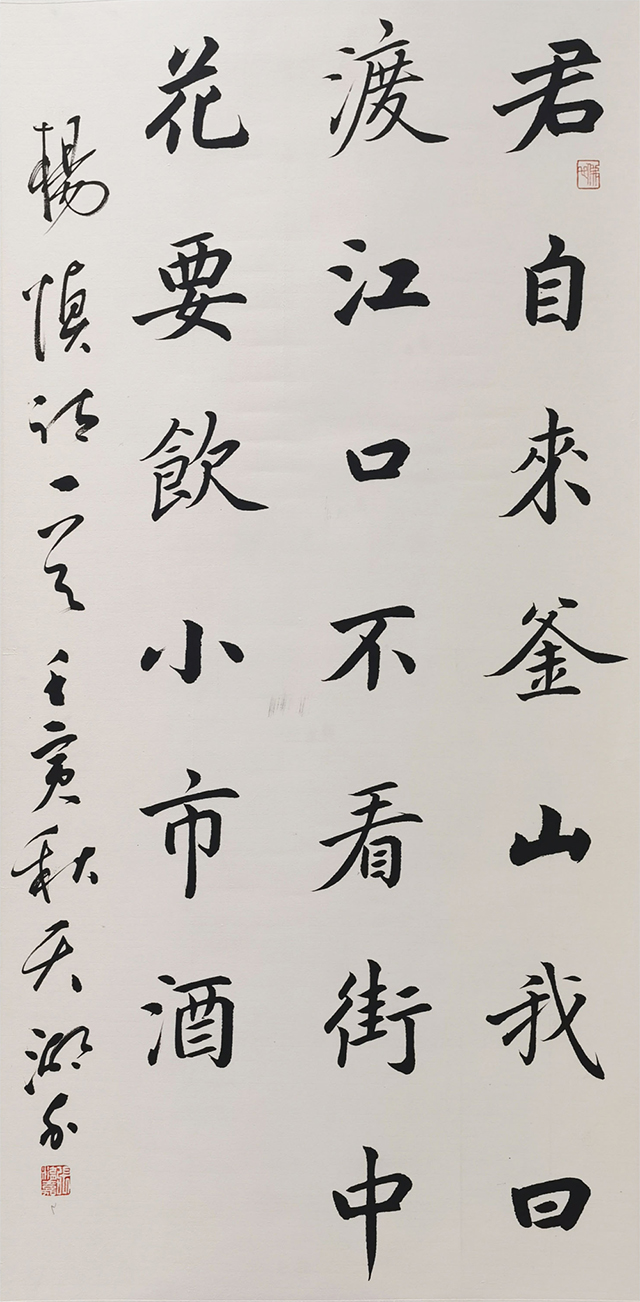 君自來釜山我曰
渡江口不看街中
花要飲小市酒
楊慎詩一首壬寅秋天湖